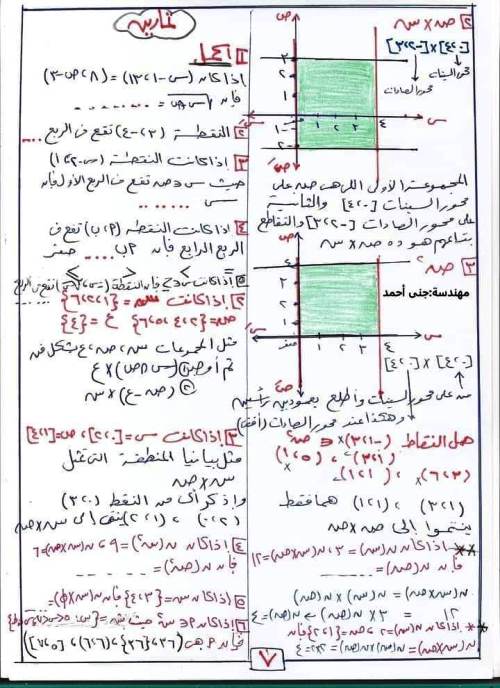 تمارين
١ أكمل
إذا كانت (س-١، ١٣) = (٨، ص-٣)
فإن
٢ النقطة (٣، -٤) تقع في الربع ....
٣ إذا كانت النقطة
تقع في الربع الأول فإن
س ........
٤ إذا كانت النقطة (٢، ب) تقع في
الربع الرابع فإن ٢ب .... صفر
> < ≥ =
٥ إذا كانت س < ٣ فإن النقطة
٢ إذا كانت س = {٦،٢،١}
ص = {٦،٥،٤،٢} ع = {٤}
مثل المجموعات س، ص، ع بشكل فن
ثم أوجد ① (س ∩ ص) × ع
② (ص - ع) × س
٣ إذا كانت س = [٢،٠] ، ص = [٤،١]
مثل بيانيا المنطقة التي تمثل
س × ص
واذكر أي من النقط (٣،٠)
، (٢،١) ينتمي إلى س × ص
٤ إذا كان ن(س²) = ٩ ، ن(س × ص) = ٦
فإن ن(ص²) = ......
٥ إذا كان س = {٤،٣} فإن ن(س × ∅) =
٢ ص × س
[٤،٠] × [٣،٢-]
محور السينات
محور الصادات
ص
٣
٢
١
١ ٢ ٣ ٤
س
-١
-٢
المجموعة الأولى اللي هي ص على
محور السينات [٤،٠] والثانية
على محور الصادات [٣،٢-] والتقاطع
بتاعهم هو ده ص × س
٣ ص²
ص
٤
٣
٢
١
صفر ١ ٢ ٣ ٤
س
مهندسة:جنى أحمد
[٤،٠] × [٤،٠]
ص على محور السينات وأطلع بعمودين رأسيين
وهكذا عند محور الصادات (أفقي)
هل النقاط (-١، ٣) × ∈ ص²
(٣،١) ، (٥،١) ×
(٦،٣) × ، (١،١)
(٣،١) ، (١،١) هما فقط
ينتموا إلى ص × ص
** إذا كان ن(س) = ٣ ، ن(س × ص) = ١٢
فإن ن(ص) = ......
ن(س × ص) = ن(س) × ن(ص)
١٢ = ٣ × ن(ص) ← ن(ص) = ٤
* إذا كان ن(س) = ٢ ، ص = {٢،١} فإن
ن(س × ص) = ن(س) × ن(ص) = ٢×٢ = ٤
٧